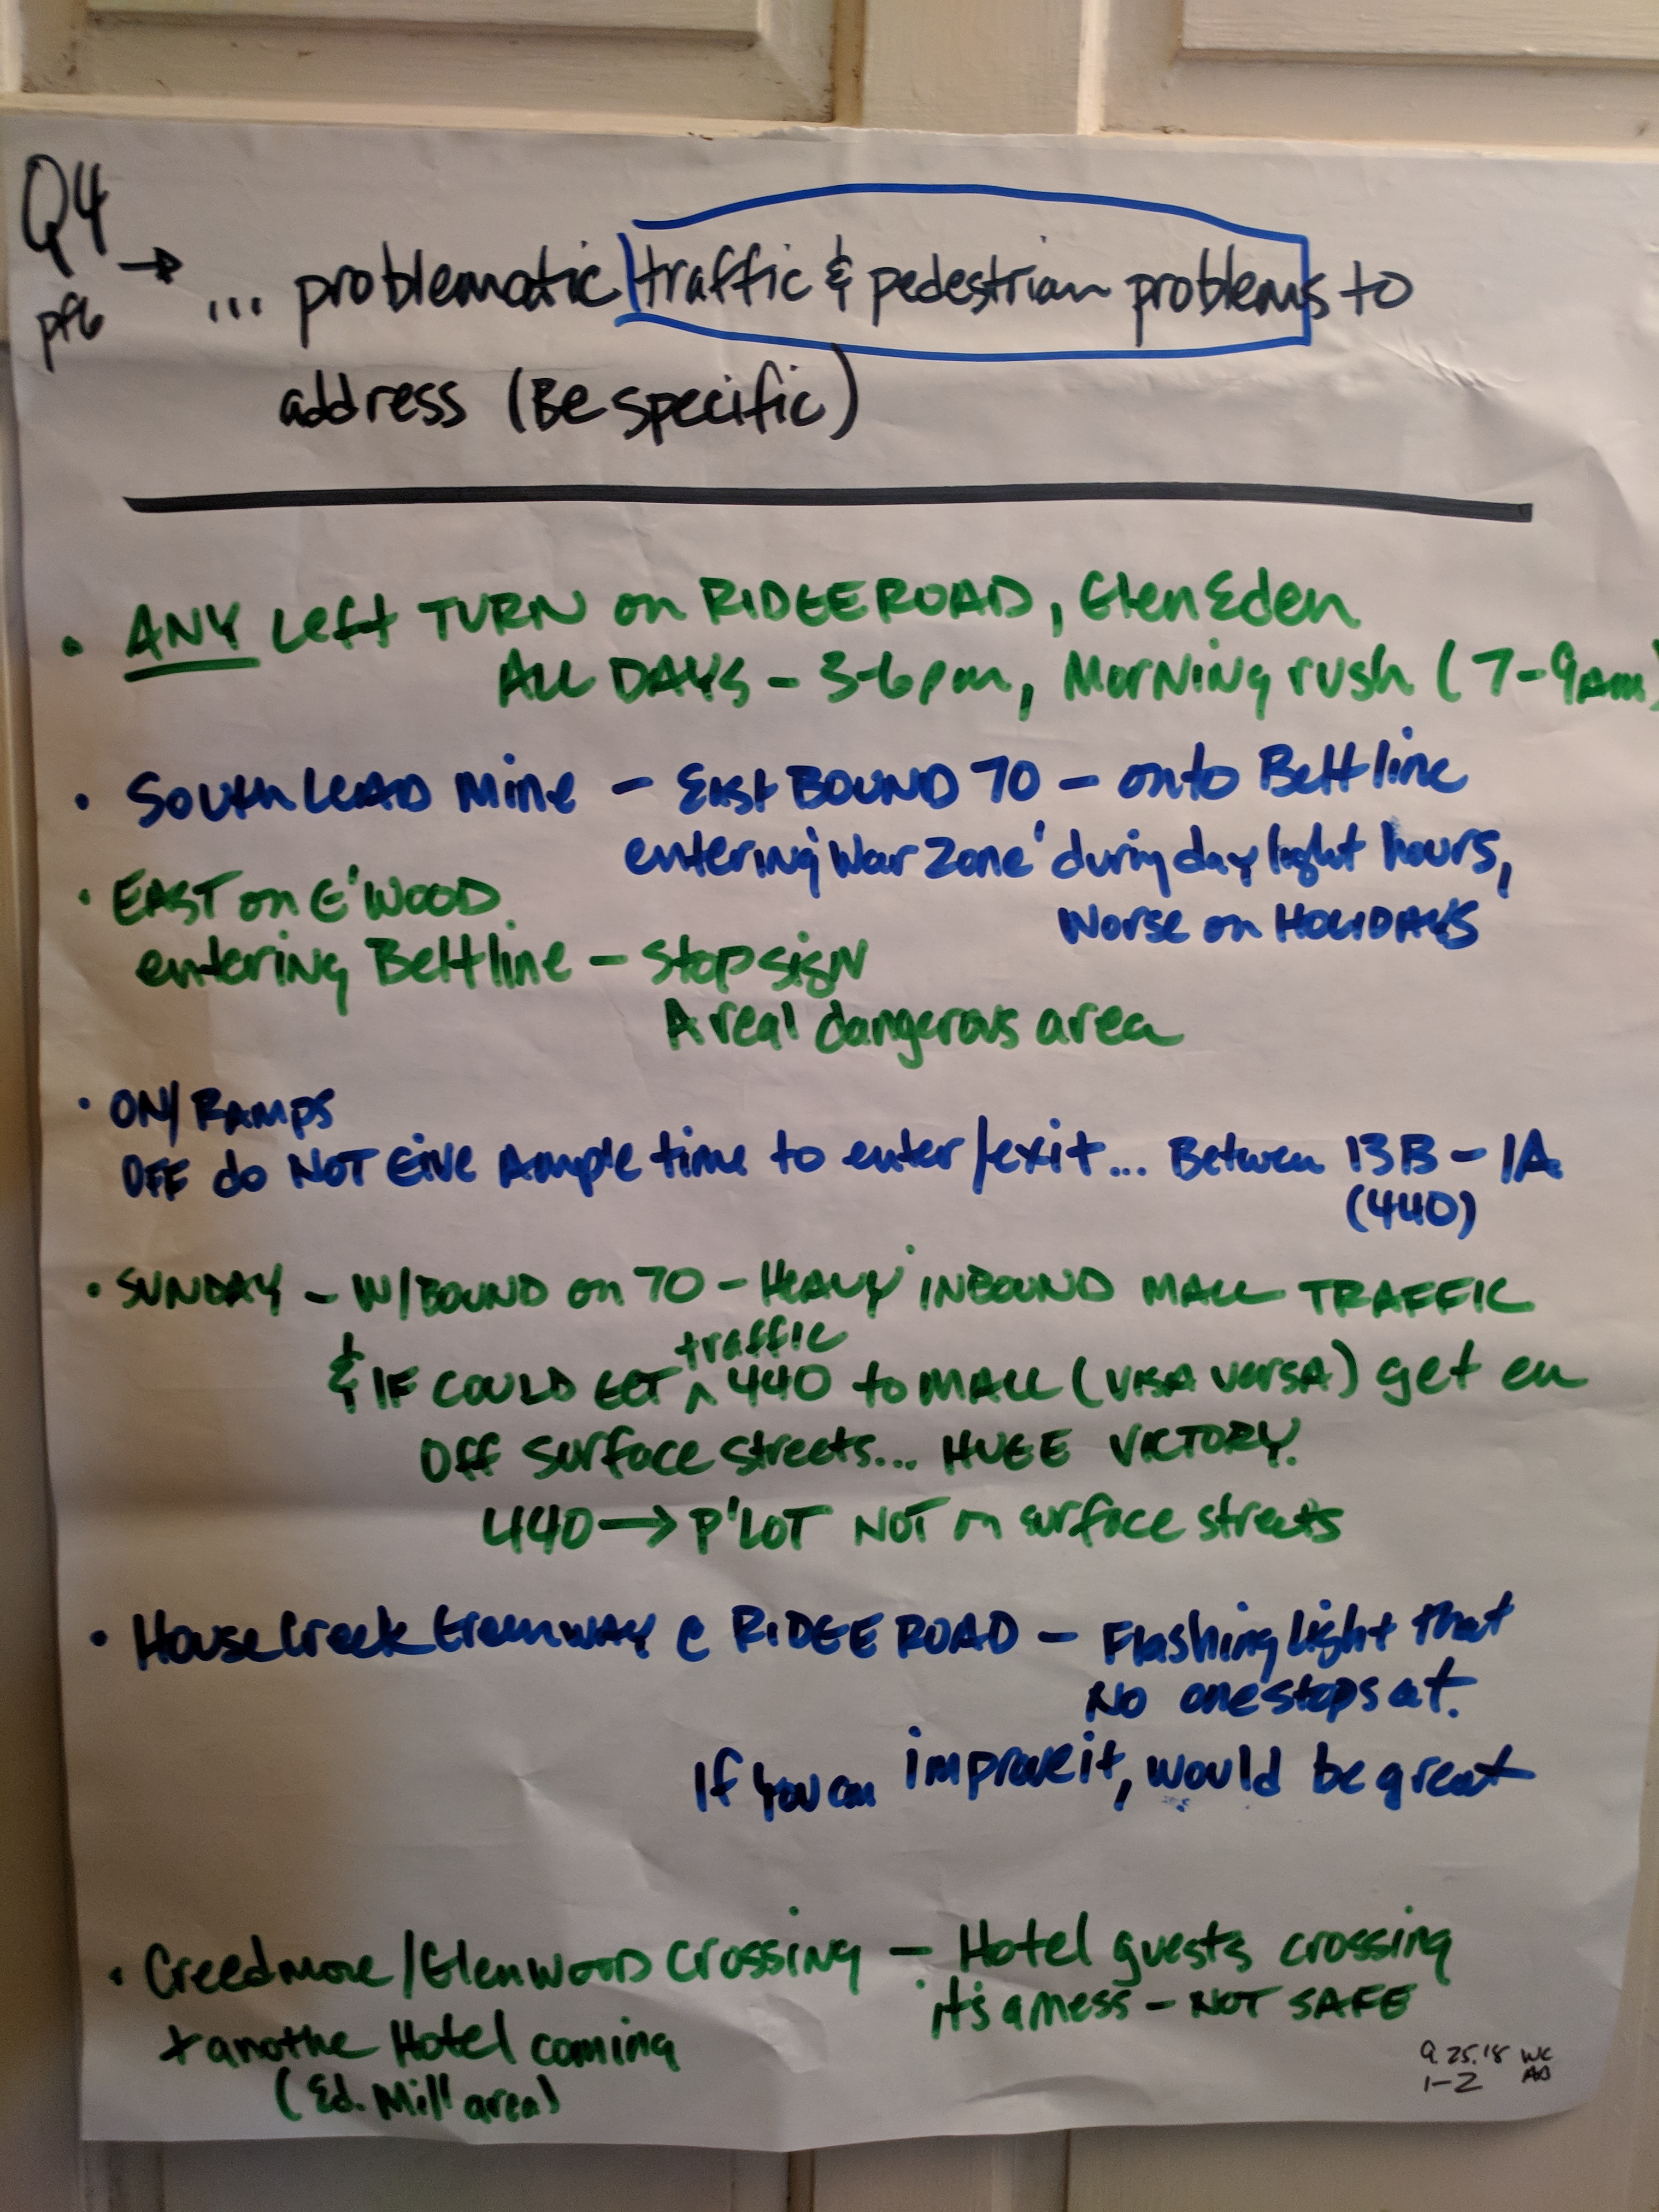 Q4
pf6
→ ... problematic traffic & pedestrian problems to
address (Be specific)
• ANY Left TURN on RIDGE ROAD, Glen Eden
ALL DAYS - 3-6pm, Morning rush (7-9am)
• South LEAD Mine - East BOUND 70 - onto Beltline
entering 'War Zone' during day light hours,
Worse on HOLIDAYS
• EAST on G'WOOD
entering Beltline - Stop sign
A real dangerous area
• ON/ RAMPS
OFF do NOT GIVE Ample time to enter/exit... Between 13B - 1A
(440)
• SUNDAY - W/BOUND on 70 - HEAVY INBOUND MALL TRAFFIC
traffic
& IF COULD GET ^ 440 to MALL (VISA VERSA) get em
Off Surface streets... HUGE VICTORY.
440 → P'LOT NOT on surface streets
• House Creek Greenway @ RIDGE ROAD - Flashing light that
No one stops at.
If you can improve it, would be great
• Creedmore/Glenwood Crossing - Hotel guests crossing
it's a mess - NOT SAFE
+ anothe Hotel coming
(Ed. Mill area)
9.25.18 WC
1-2 AD